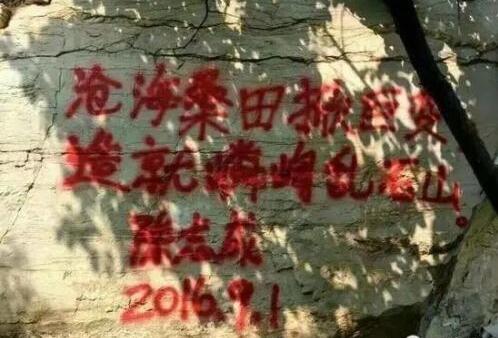 沧海桑田掀巨变
造就嶙峋乱石山。
志成
2016.9.1